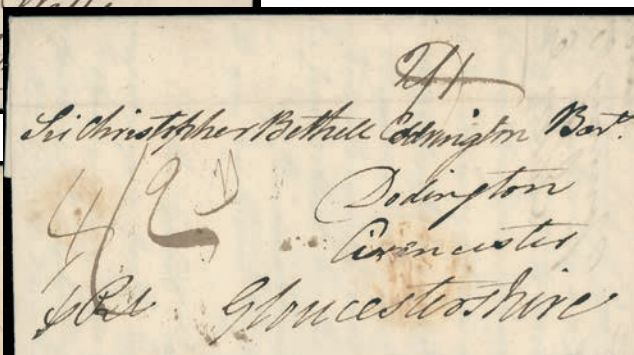 2/1
Sir Christopher Bethell Codrington Bart.
4/2
Dodington
Cirencester
Gloucestershire